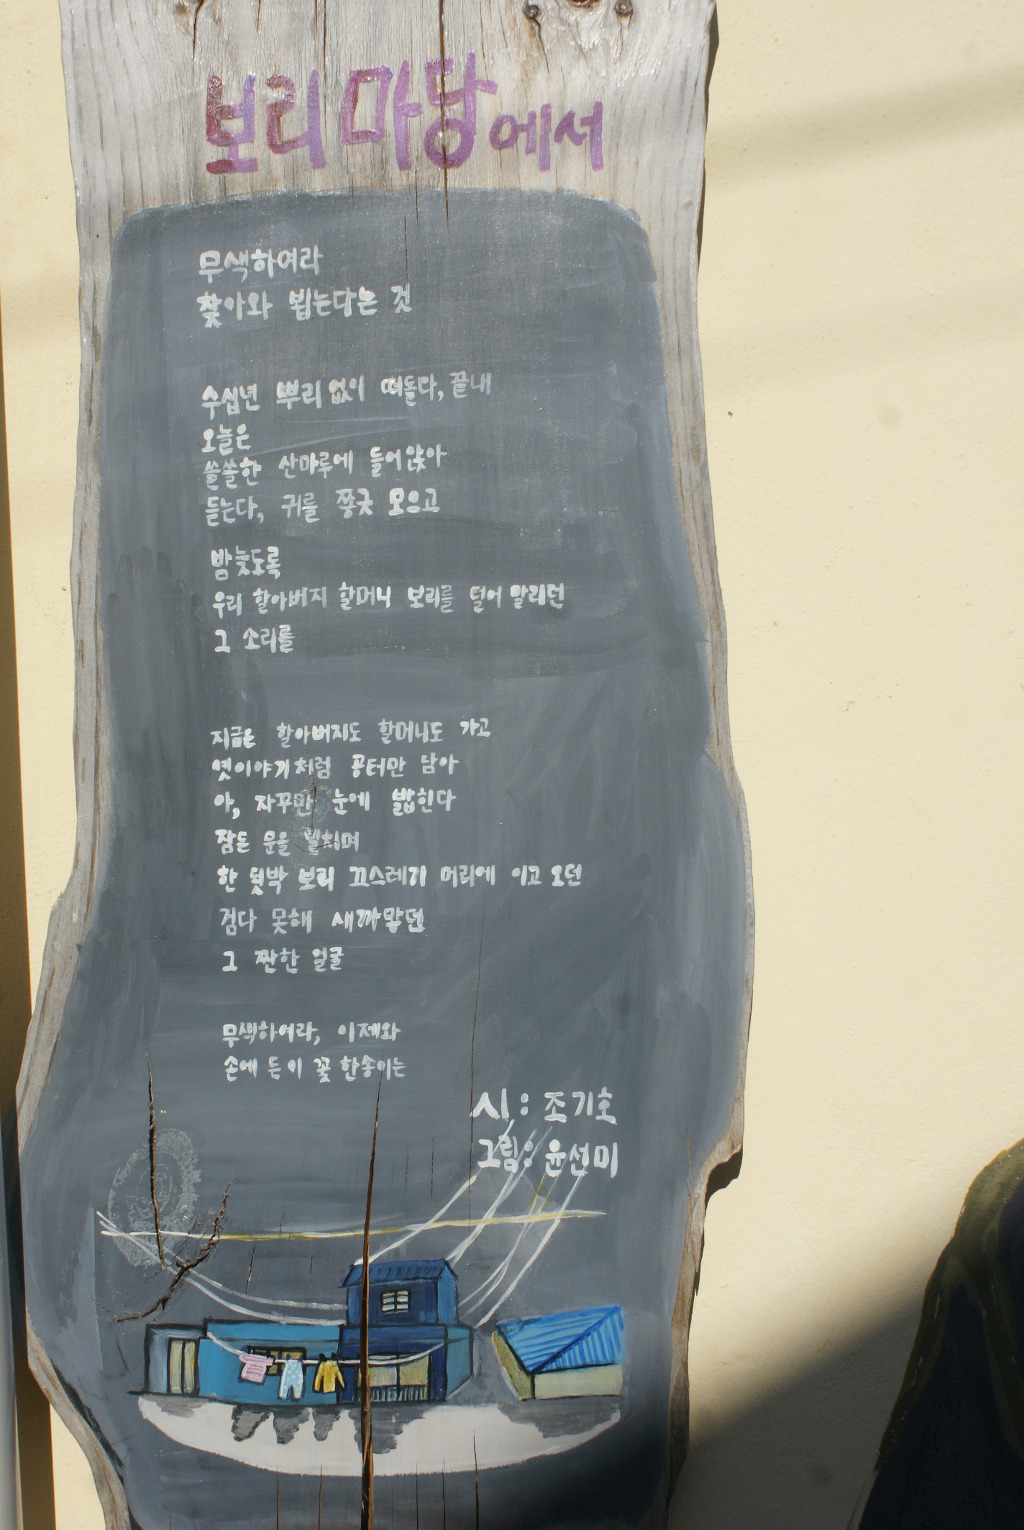 보리마당에서
무색하여라
찾아와 뵙는다는 것
수십년 뿌리 없이 떠돌다, 끝내
오늘은
쓸쓸한 산마루에 들어앉아
듣는다, 귀를 쫑긋 모으고
밤늦도록
우리 할아버지 할머니 보리를 털어 말리던
그 소리를
지금은 할아버지도 할머니도 가고
옛이야기처럼 공터만 남아
아, 자꾸만 눈에 밟힌다
잠든 문을 밀치며
한 됫박 보리 끄스레기 머리에 이고 오던
검다 못해 새까맣던
그 짠한 얼굴
무색하여라, 이제와
손에 든 이 꽃 한송이는
시: 조기호
그림: 윤선미